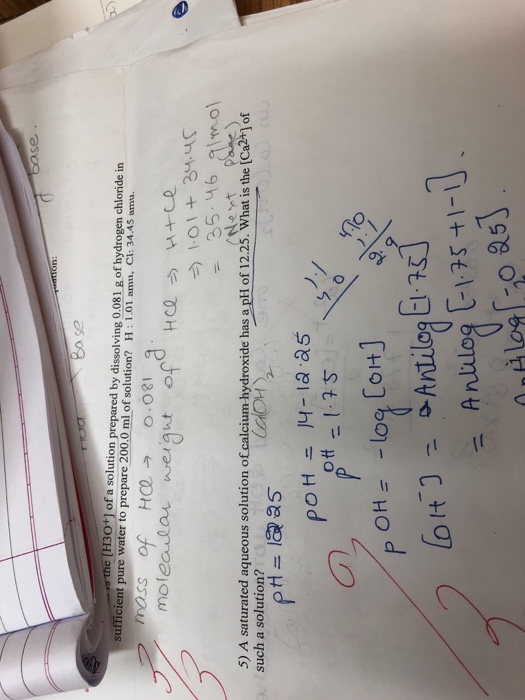 base.
Base
is the [H3O+] of a solution prepared by dissolving 0.081 g of hydrogen chloride in
sufficient pure water to prepare 200.0 ml of solution? H : 1.01 amu, Cl: 34.45 amu.
mass of HCl → 0.081 g.
molecular weight of HCl ⇒ H+Cl
⇒ 1.01 + 34.45
= 35.46 g/mol
(Next page)
5) A saturated aqueous solution of calcium hydroxide has a pH of 12.25. What is the [Ca2+] of
such a solution?
Ca(OH)2
pH = 12.25
pOH = 14-12.25
pOH = 1.75
pOH = -log[OH]
[OH-] = Antilog[-1.75]
= Antilog [-1.75+1-1].
Antilog
25].